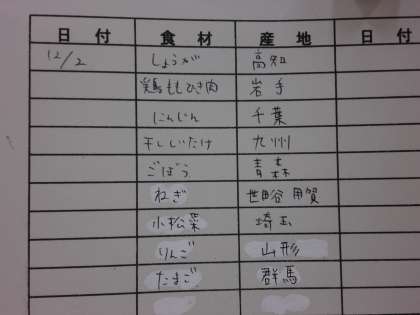 日付 食材 産地 日付
12/2 しょうが 高知
鶏ももひき肉 岩手
にんじん 千葉
干ししいたけ 九州
ごぼう 青森
ねぎ 世田谷 用賀
小松菜 埼玉
りんご 山形
たまご 群馬